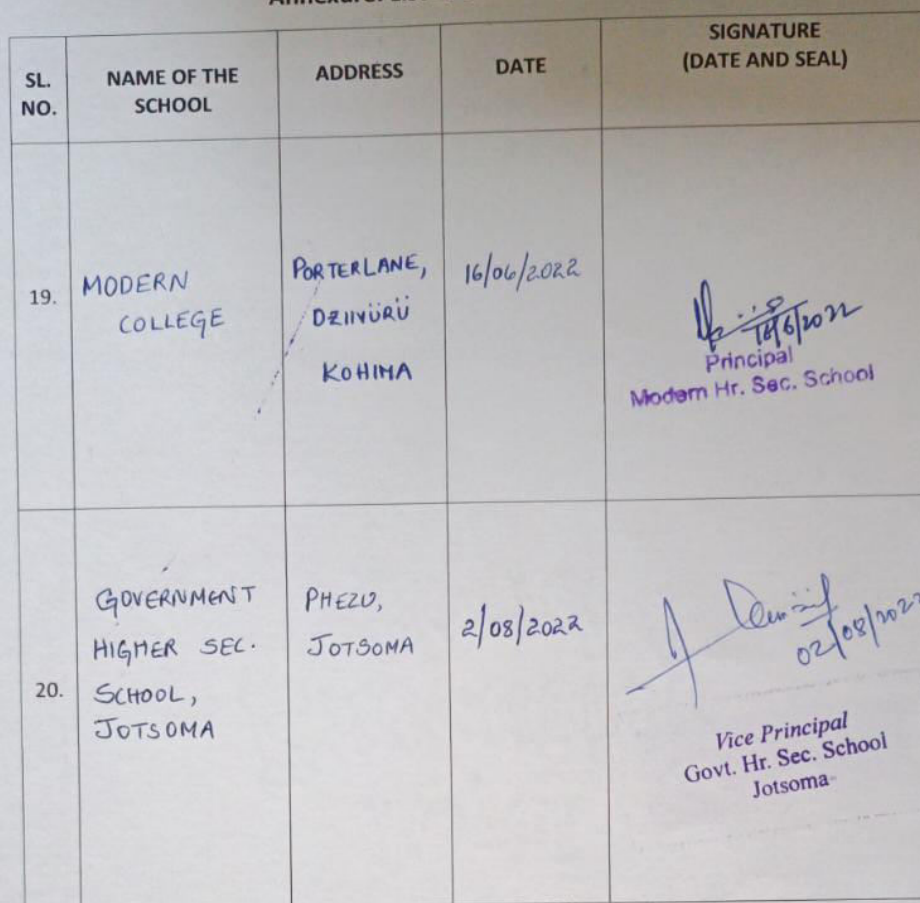 SL. NO.
NAME OF THE SCHOOL
ADDRESS
DATE
SIGNATURE
(DATE AND SEAL)
19.
MODERN
COLLEGE
PORTERLANE,
DZIIVÜRÜ
KOHIMA
16/06/2022
16/6/2022
Principal
Modern Hr. Sec. School
20.
GOVERNMENT
HIGHER SEC.
SCHOOL,
JOTSOMA
PHEZU,
JOTSOMA
2/08/2022
02/08/2022
Vice Principal
Govt. Hr. Sec. School
Jotsoma